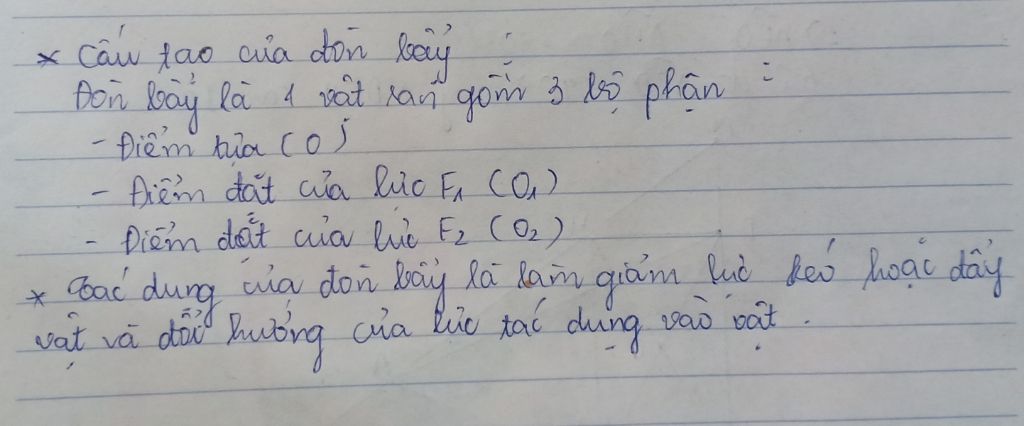 * Cấu tạo của đòn bẩy :
Đòn bẩy là 1 vật rắn gồm 3 bộ phận :
- Điểm tựa (O)
- Điểm đặt của lực F1 (O1)
- Điểm đặt của lực F2 (O2)
* Tác dụng của đòn bẩy là làm giảm lực kéo hoặc đẩy
vật và đổi hướng của lực tác dụng vào vật.